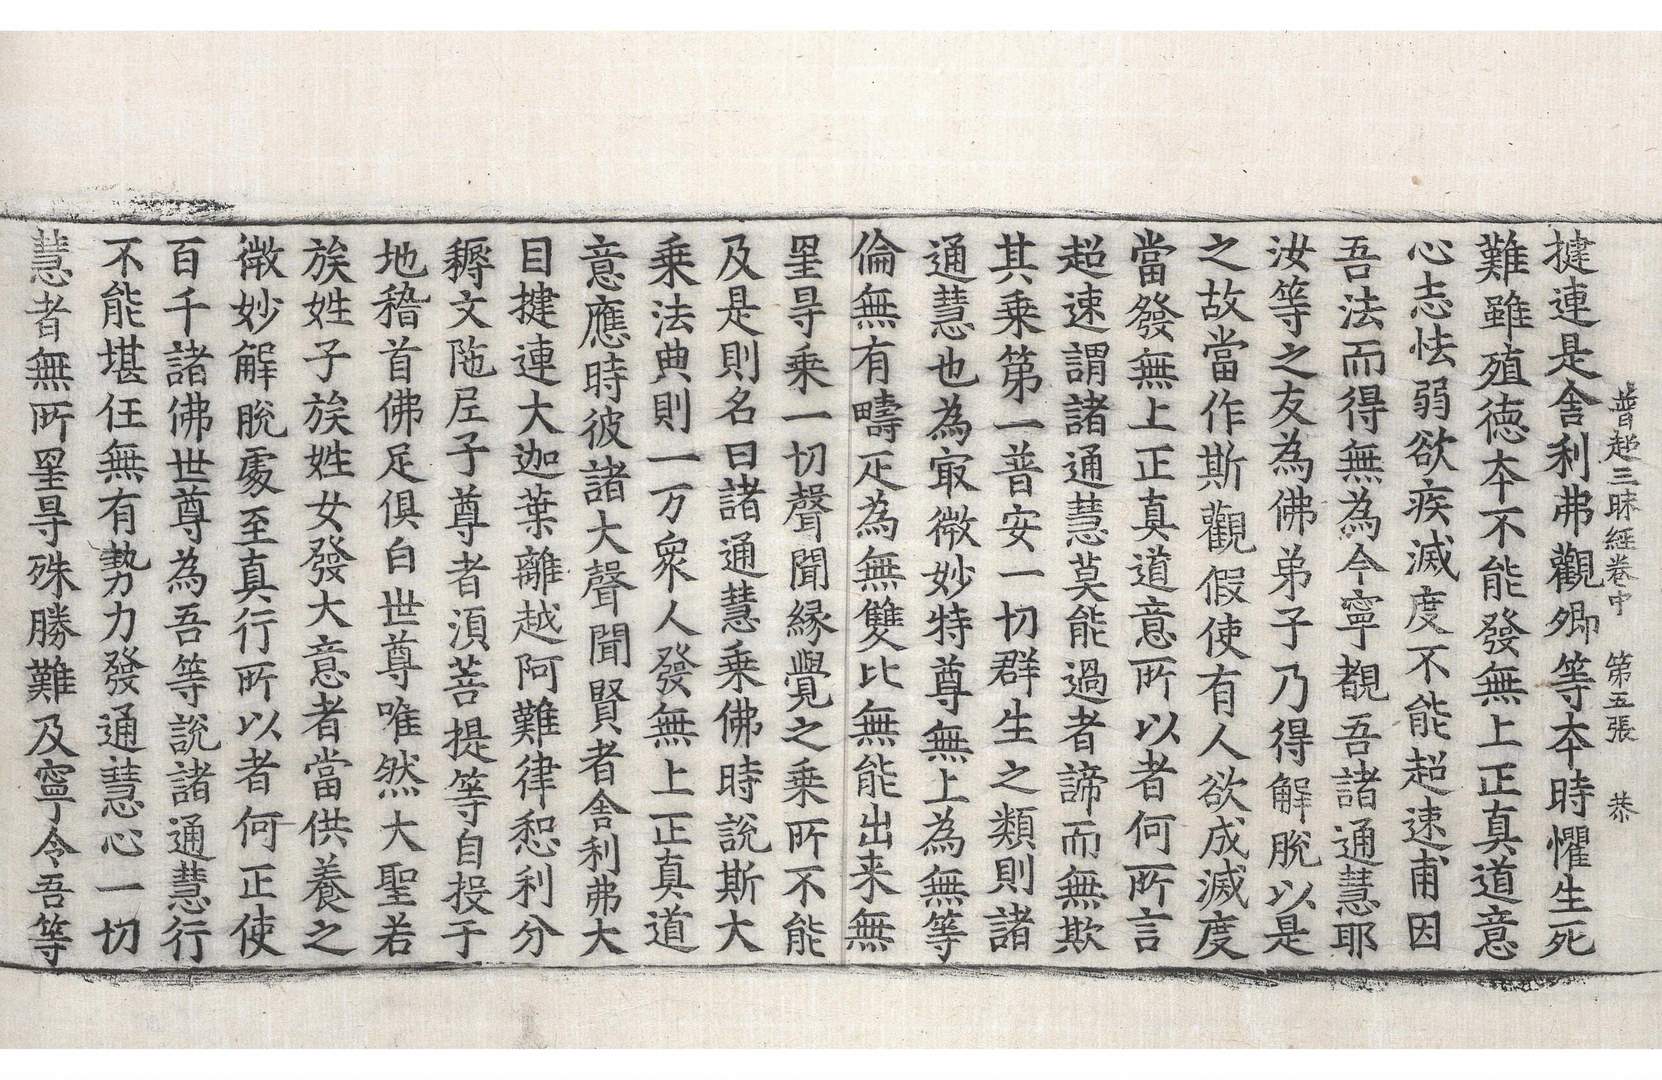 普超三昧經卷中　第五張　恭
揵連是舍利弗觀卿等夲時懼生死
難雖殖德夲不能發無上正真道意
心志怯弱欲疾滅度不能超速甫因
吾法而得無為今寧覩吾諸通慧耶
汝等之友為佛弟子乃得解脫以是
之故當作斯觀假使有人欲成滅度
當發無上正真道意所以者何所言
超速謂諸通慧莫能過者諦而無欺
其乘第一普安一切群生之類則諸
通慧也為㝡微妙特尊無上為無等
倫無有疇疋為無雙比無能出来無
罣㝵乘一切聲聞緣覺之乘所不能
及是則名曰諸通慧乘佛時說斯大
乘法典則一万衆人發無上正真道
意應時彼諸大聲聞賢者舍利弗大
目揵連大迦葉離越阿難律惒利分
耨文陁尼子尊者湏菩提等自投于
地稽首佛足俱白世尊唯然大聖若
族姓子族姓女發大意者當供養之
微妙解脫處至真行所以者何正使
百千諸佛世尊為吾等說諸通慧行
不能堪任無有勢力發通慧心一切
慧者無所罣㝵殊勝難及寧令吾等